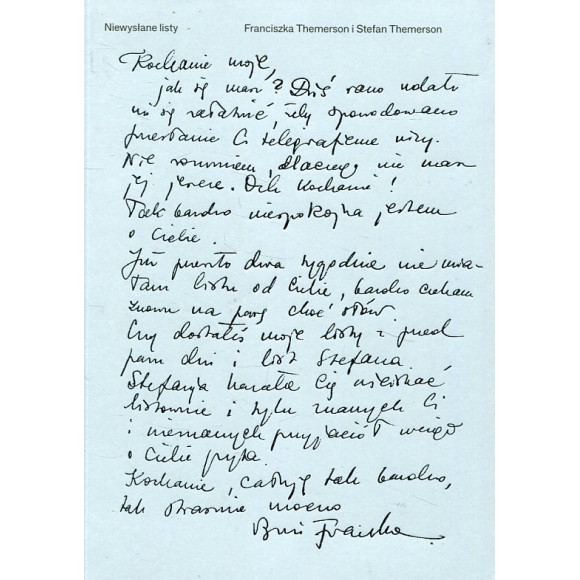 Niewysłane listy
Franciszka Themerson i Stefan Themerson
Kochanie moje,
jak się masz? Dziś rano udało
mi się załatwić, żeby spowodowano
przesłanie Ci telegrafem wizy.
Nie rozumiem, dlaczego nie masz
jej jeszcze. Och Kochanie!
Tak bardzo niespokojna jestem
o Ciebie.
Już przeszło dwa tygodnie nie mia-
łam listu od Ciebie, bardzo czekam
znowu na parę choć słów.
Czy dostałeś moje listy z przed
paru dni i list Stefana.
Stefanja kazała Cię uściskać
listownie i tylu znanych Ci
i nieznanych przyjaciół wciąż
o Ciebie pyta.
Kochanie, całuję tak bardzo,
tak strasznie mocno
Franciszka.